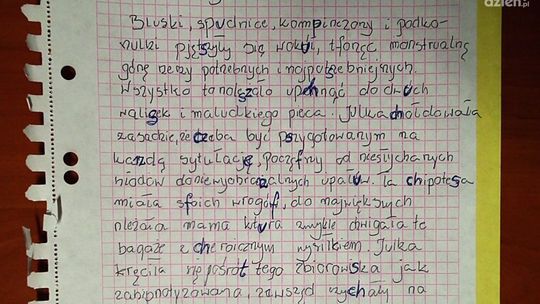 dzien.pl
Bluski, spudnice, kompinezony i podko-
nulki piętszyły się wokuł, tforząc monstrualną
górę rzeczy potrzebnych i najpotszebniejszych.
Wszystko to nalszało upchnąć do dwuch
walisek i maludkiego pleca. Julka chołdowała
zasadzie, że czeba być pszygotowanym na
kazdą sytułację, począfszy od niesłychanych
chłodów do niewyobrażalnych upałuw. Ta chipoteza
miała sfoich wrogóf, do największych
należała mama ktura zwykle dwigała te
bagaże z cheroicznym wysiłkiem. Julka
kręciła się pośrót tego zbiorowska jak
zachipnotyzowana, zewsząd czychały na